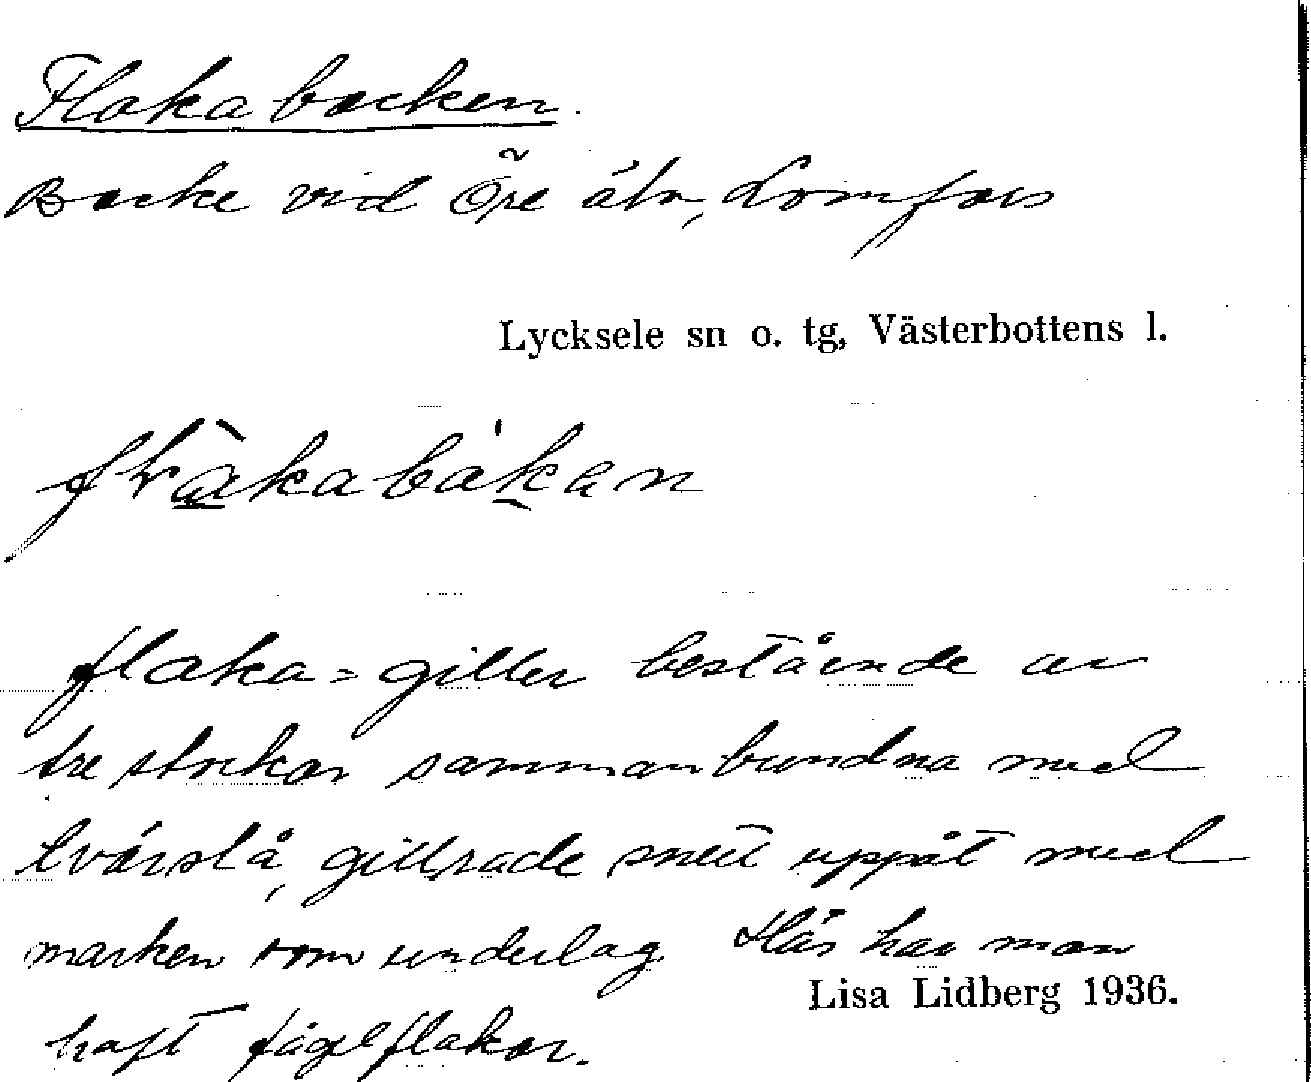 Flakabacken.
Backe vid Öre älv, Lomfors
Lycksele sn o. tg, Västerbottens l.
flaka = giller bestående av
tre stockar sammanbundna med
tvärslå, gillrade snett uppåt med
marken som underlag. Här har man
Lisa Lidberg 1936.
haft fågelflakar.